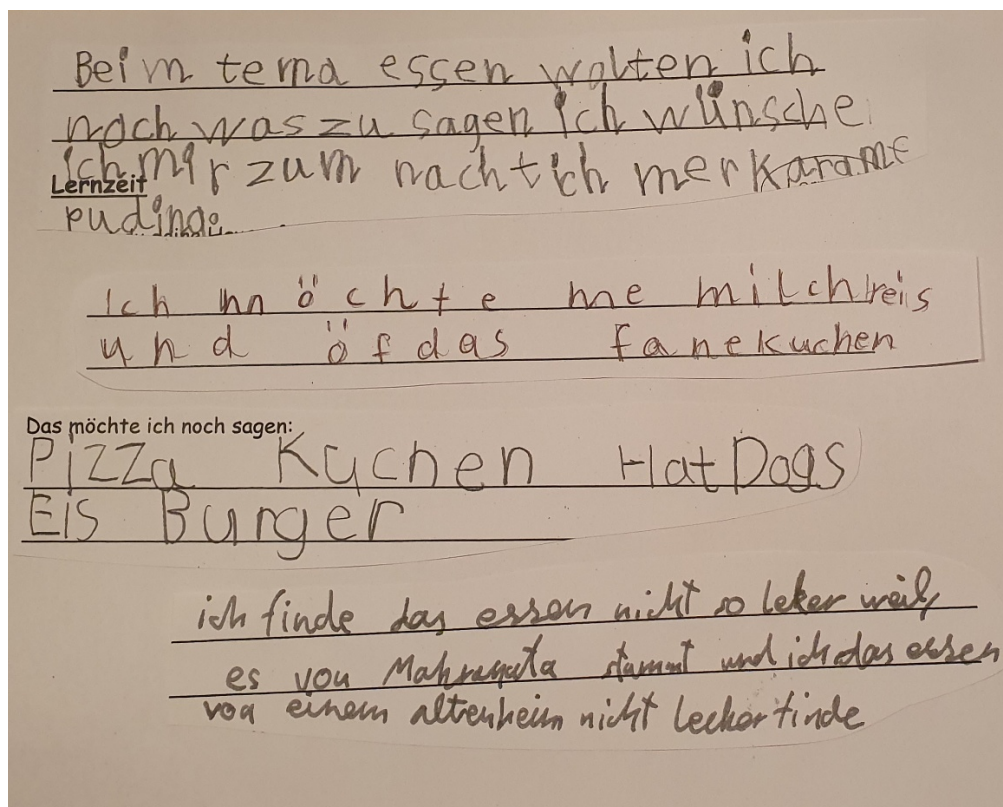 Beim tema essen wolten ich
noch was zu sagen ich wünsche
ich mir zum nachtich mer karame
Lernzeit
puding.
Ich möchte me milchreis
und öfdas fanekuchen
Das möchte ich noch sagen:
Pizza Kuchen HatDogs
Eis Burger
ich finde das essen nicht so leker weil
es von stammt und ich das essen
von einem altenheim nicht lecker finde